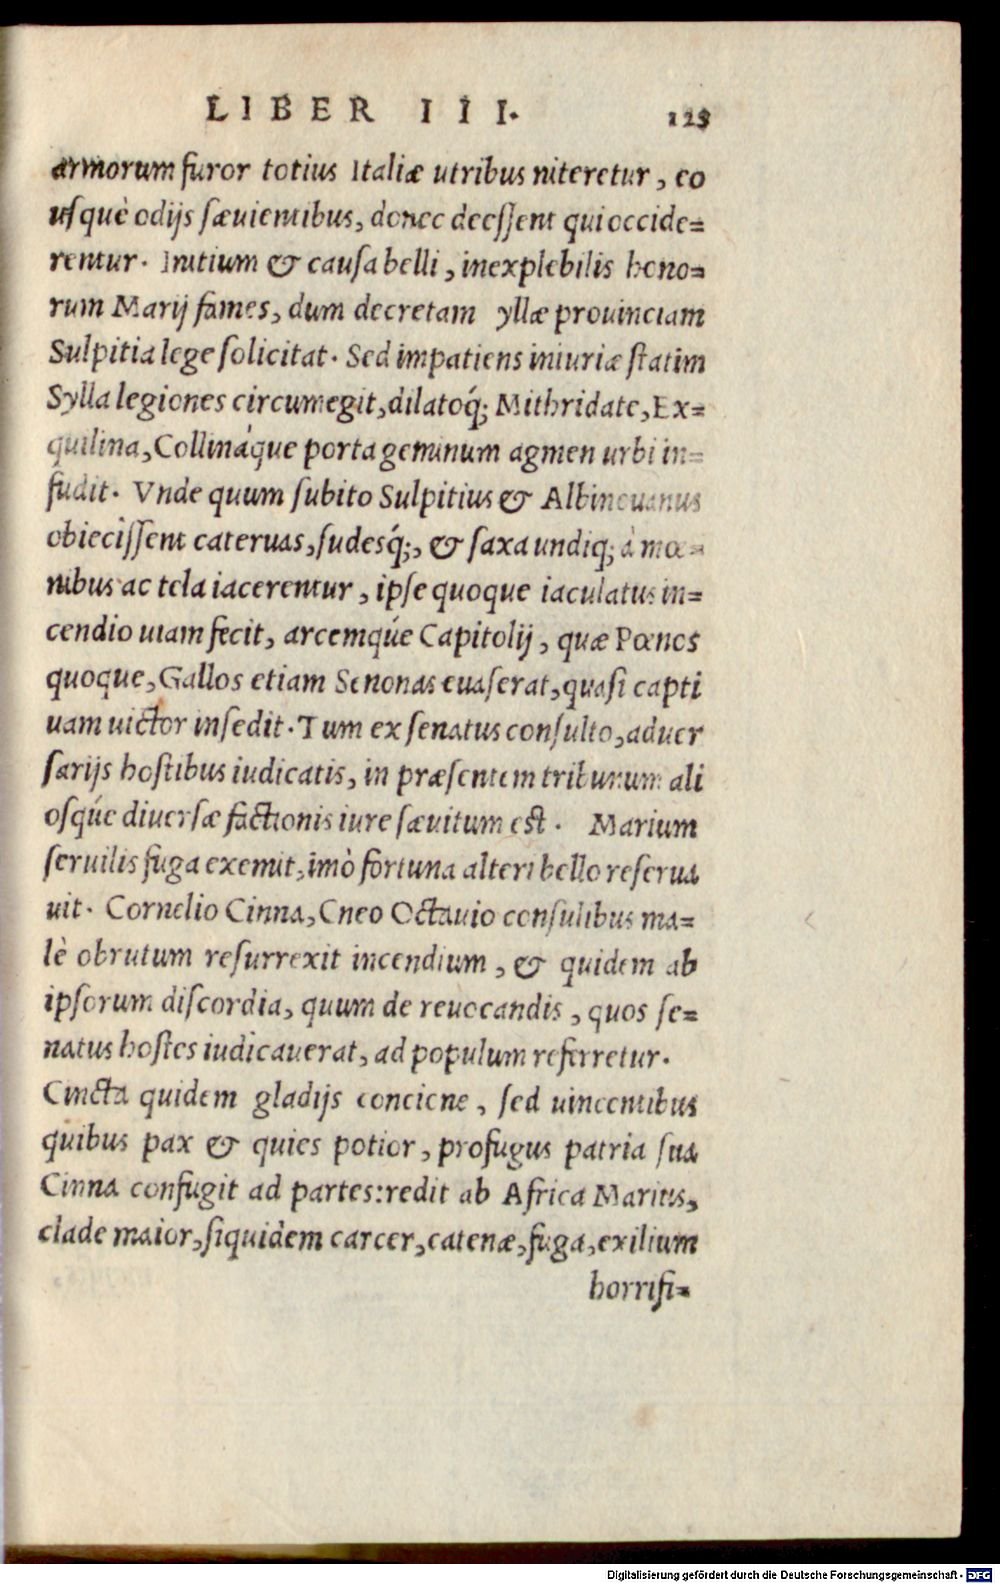 LIBER III. 125
armorum furor totius Italiæ utribus niteretur, eo
usque odijs sæuientibus, donec deessent qui occide=
rentur. Initium & causa belli, inexplebilis hono=
rum Marij fames, dum decretam yllæ prouinciam
Sulpitia lege solicitat. Sed impatiens iniuriæ statim
Sylla legiones circumegit, dilatoq́; Mithridate, Ex=
quilina, Collináque porta geminum agmen urbi in=
fudit. Vnde quum subito Sulpitius & Albinouanus
obiecissent cateruas, sudesq́;, & saxa undiq; à mœ=
nibus ac tela iacerentur, ipse quoque iaculatus in=
cendio uiam fecit, arcemqúe Capitolij, quæ Pœnos
quoque, Gallos etiam Senonas euaserat, quasi capti
uam uictor insedit. Tum ex senatus consulto, aduer
sarijs hostibus iudicatis, in præsentem tribunum ali
osqúe diuersæ factionis iure sæuitum est. Marium
seruilis fuga exemit, imò fortuna alteri bello reserua
uit. Cornelio Cinna, Cneo Octauio consulibus ma=
lè obrutum resurrexit incendium, & quidem ab
ipsorum discordia, quum de reuocandis, quos se=
natus hostes iudicauerat, ad populum referretur.
Cincta quidem gladijs concione, sed uincentibus
quibus pax & quies potior, profugus patria sua
Cinna confugit ad partes: redit ab Africa Marius,
clade maior, siquidem carcer, catenæ, fuga, exilium
horrifi=
Digitalisierung gefördert durch die Deutsche Forschungsgemeinschaft - DFG